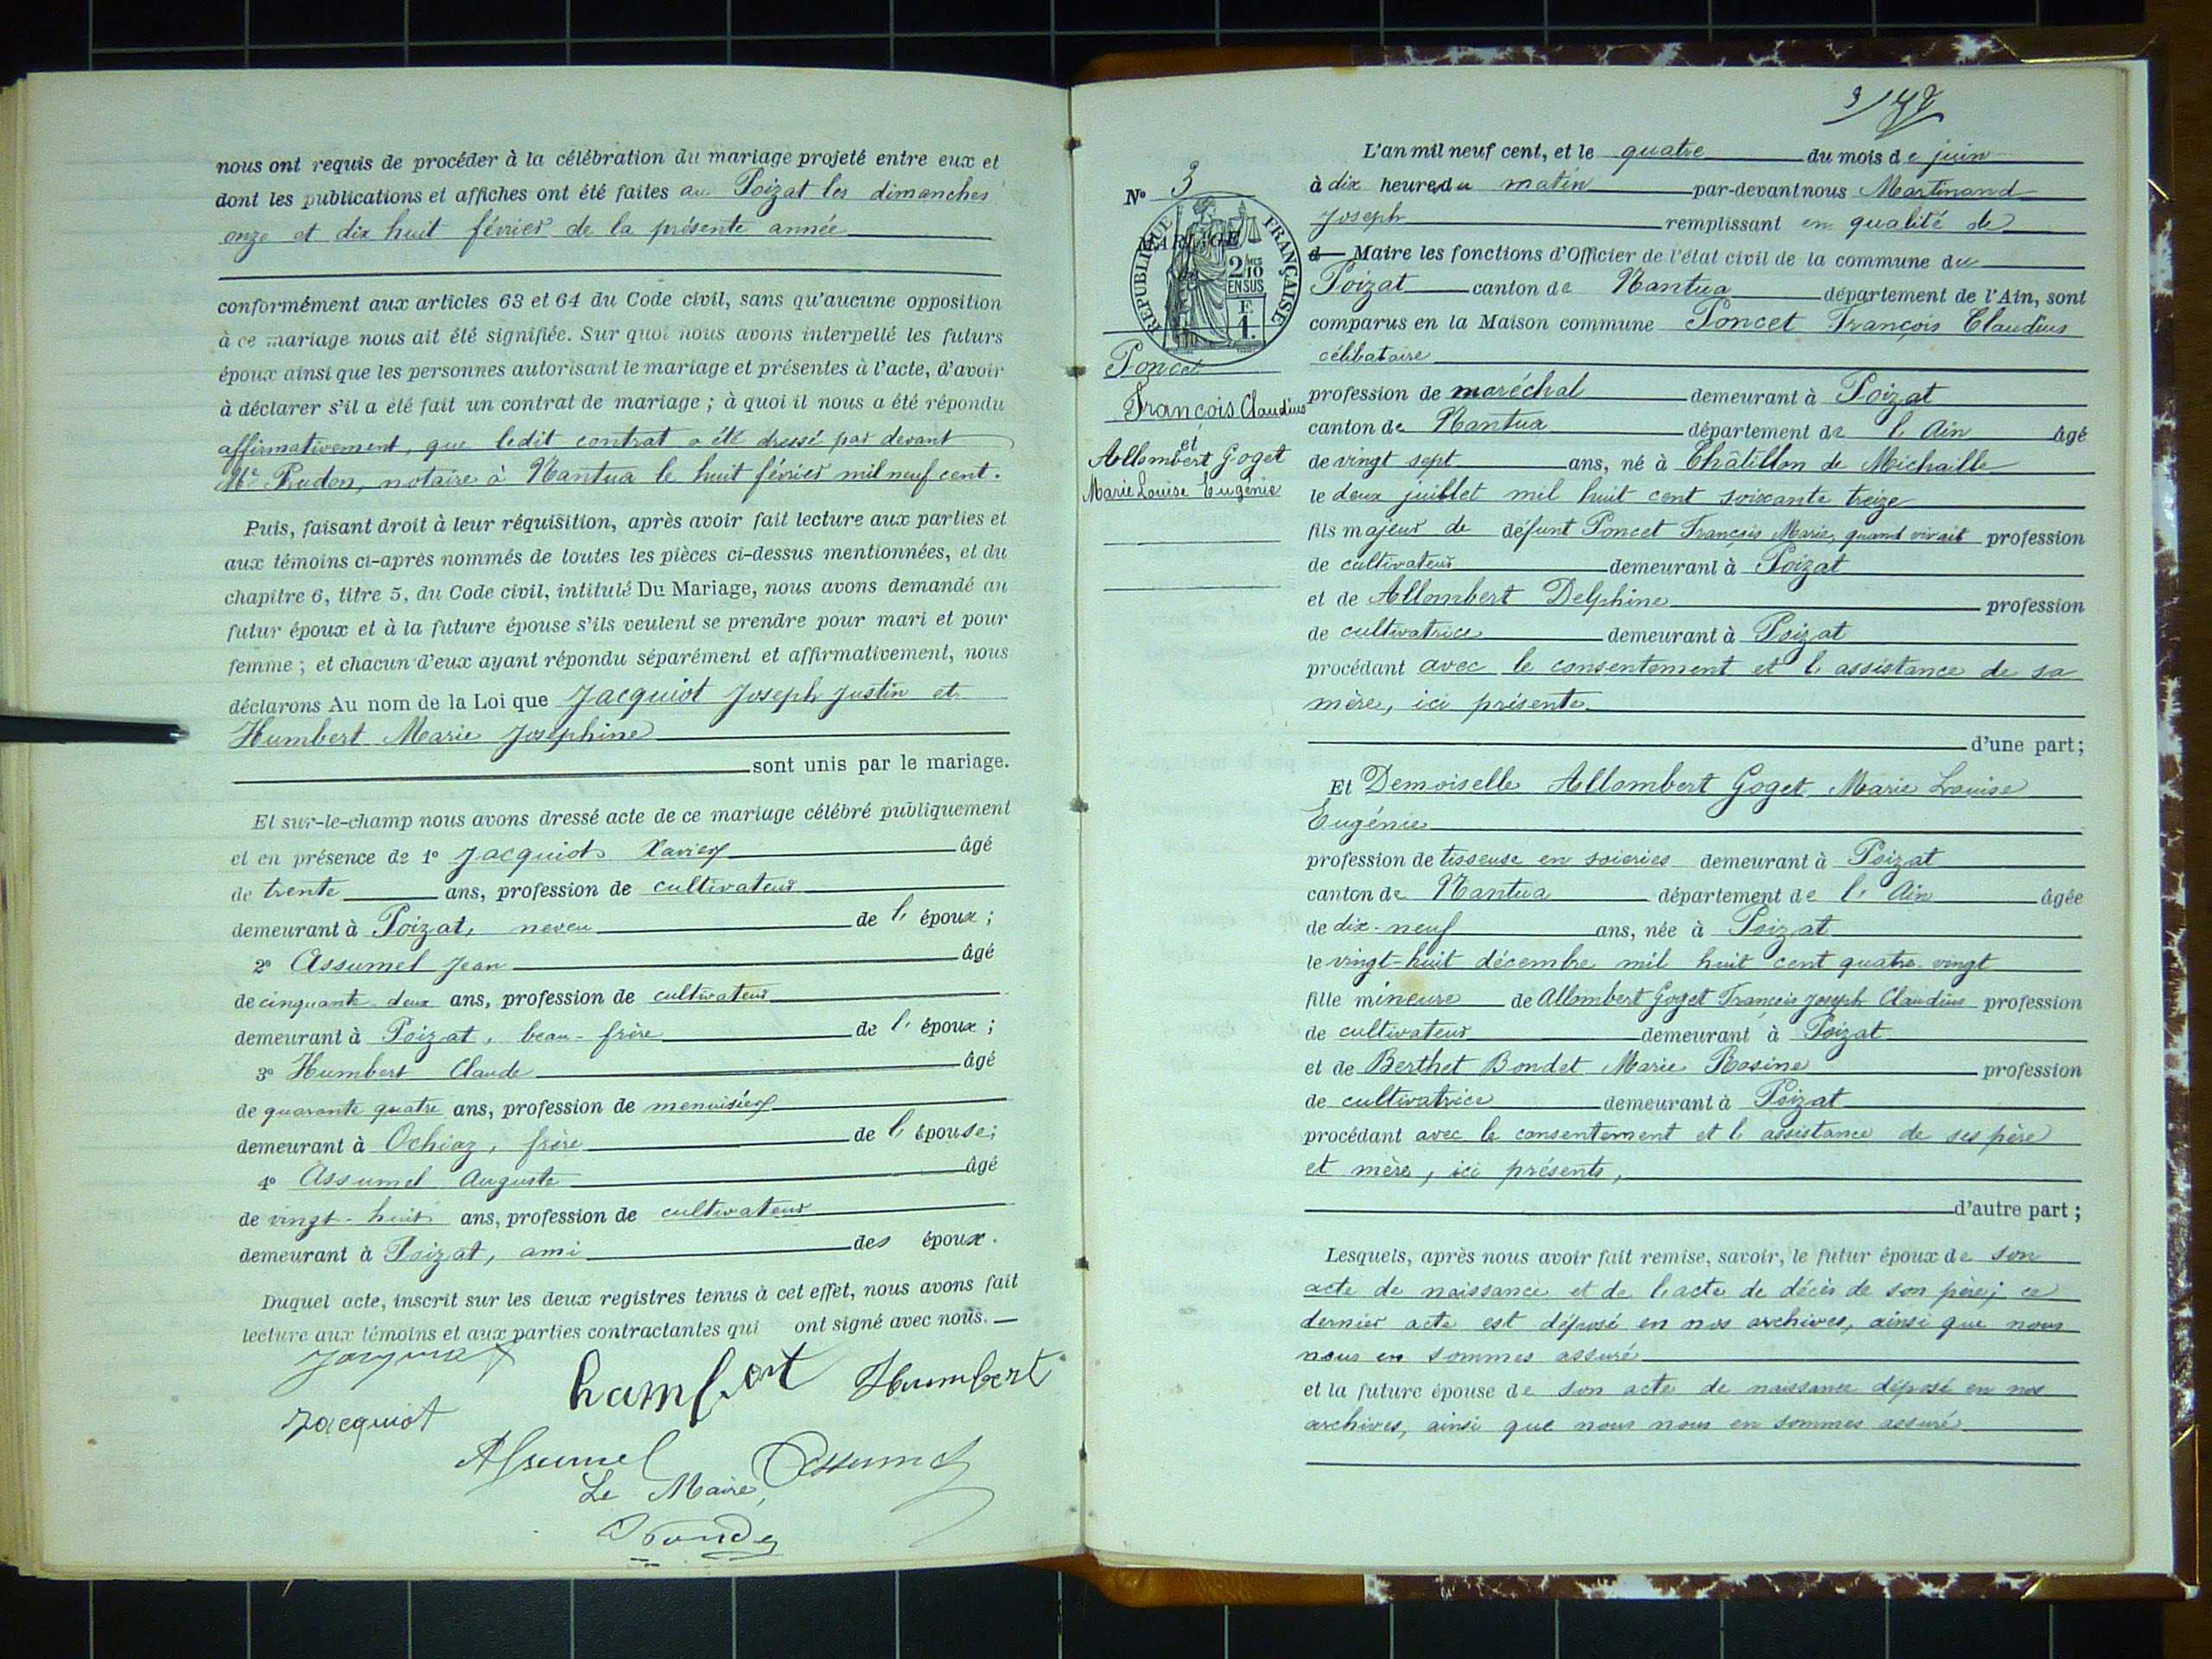 nous ont requis de procéder à la célébration du mariage projeté entre eux et
dont les publications et affiches ont été faites au Poizat les dimanches
onze et dix huit février de la présente année
conformément aux articles 63 et 64 du Code civil, sans qu'aucune opposition
à ce mariage nous ait été signifiée. Sur quoi nous avons interpellé les futurs
époux ainsi que les personnes autorisant le mariage et présentes à l'acte, d'avoir
à déclarer s'il a été fait un contrat de mariage ; à quoi il nous a été répondu
affirmativement, que ledit contrat a été dressé par devant
Me Rudon, notaire à Nantua le huit février mil neuf cent.
Puis, faisant droit à leur réquisition, après avoir fait lecture aux parties et
aux témoins ci-après nommés de toutes les pièces ci-dessus mentionnées, et du
chapitre 6, titre 5, du Code civil, intitulé Du Mariage, nous avons demandé au
futur époux et à la future épouse s'ils veulent se prendre pour mari et pour
femme ; et chacun d'eux ayant répondu séparément et affirmativement, nous
déclarons Au nom de la Loi que Jacquiot Joseph Justin et
Humbert Marie Joséphine
sont unis par le mariage.
Et sur-le-champ nous avons dressé acte de ce mariage célébré publiquement
et en présence de 1° Jacquiot Xavier âgé
de trente ans, profession de cultivateur
demeurant à Poizat, neveu de l'époux ;
2° Assumel Jean âgé
de cinquante deux ans, profession de cultivateur
demeurant à Poizat, beau-frère de l'époux ;
3° Humbert Claude âgé
de quarante quatre ans, profession de menuisier
demeurant à Ochiaz, frère de l'épouse ;
4° Assumel Auguste âgé
de vingt-huit ans, profession de cultivateur
demeurant à Poizat, ami des époux.
Duquel acte, inscrit sur les deux registres tenus à cet effet, nous avons fait
lecture aux témoins et aux parties contractantes qui ont signé avec nous.
Jacquiot
Humbert
Jacquiot
Assumel Assumel
Le Maire,
N° 3
MARIAGE
RÉPUBLIQUE FRANÇAISE
2/10
EN SUS
F.
1.
Poncet
François Claudius
et
Allombert Goget
Marie Louise Eugénie
L'an mil neuf cent, et le quatre du mois de juin
à dix heures du matin par-devant nous Martinand
Joseph remplissant en qualité de
d Maire les fonctions d'Officier de l'état civil de la commune du
Poizat canton de Nantua département de l'Ain, sont
comparus en la Maison commune Poncet François Claudius
célibataire
profession de maréchal demeurant à Poizat
canton de Nantua département de l'Ain âgé
de vingt sept ans, né à Châtillon de Michaille
le deux juillet mil huit cent soixante treize
fils majeur de défunt Poncet François Marie, quand vivait profession
de cultivateur demeurant à Poizat
et de Allombert Delphine profession
de cultivatrice demeurant à Poizat
procédant avec le consentement et l'assistance de sa
mère, ici présente
d'une part ;
Et Demoiselle Allombert Goget Marie Louise
Eugénie
profession de tisseuse en soieries demeurant à Poizat
canton de Nantua département de l'Ain âgée
de dix-neuf ans, née à Poizat
le vingt-huit décembre mil huit cent quatre-vingt
fille mineure de Allombert Goget François Joseph Claudius profession
de cultivateur demeurant à Poizat
et de Berthet Bondet Marie Rosine profession
de cultivatrice demeurant à Poizat
procédant avec le consentement et l'assistance de ses père
et mère, ici présents,
d'autre part ;
Lesquels, après nous avoir fait remise, savoir, le futur époux de son
acte de naissance et de l'acte de décès de son père ; ce
dernier acte est déposé en nos archives, ainsi que nous
nous en sommes assuré
et la future épouse de son acte de naissance déposé en nos
archives, ainsi que nous nous en sommes assuré